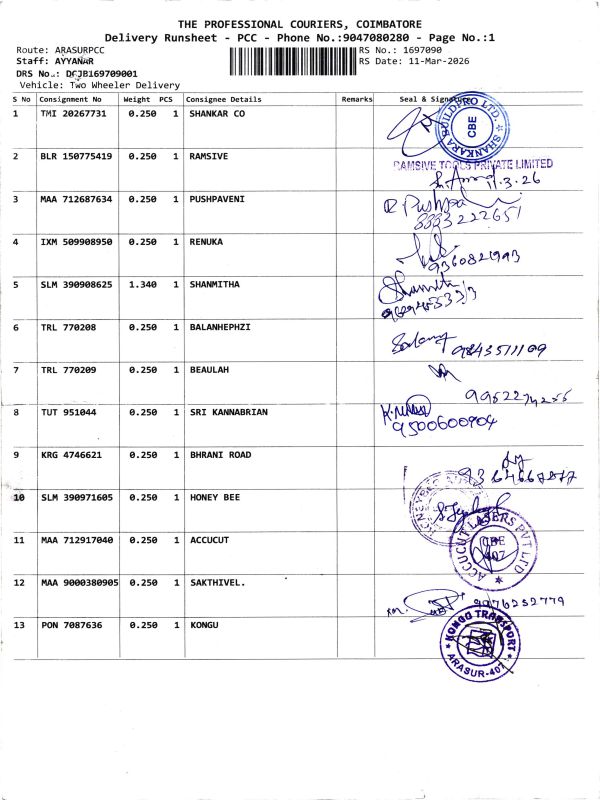 THE PROFESSIONAL COURIERS, COIMBATORE
Delivery Runsheet - PCC - Phone No.:9047080280 - Page No.:1
Route: ARASURPCC
RS No.: 1697090
Staff: AYYANAR
RS Date: 11-Mar-2026
DRS No.: DCJB169709001
Vehicle: Two Wheeler Delivery
S No Consignment No Weight PCS Consignee Details Remarks Seal & Signature
1 TMI 20267731 0.250 1 SHANKAR CO
SHANKARA BUILDPRO LTD. CBE
2 BLR 150775419 0.250 1 RAMSIVE
RAMSIVE TOOLS PRIVATE LIMITED
11.3.26
3 MAA 712687634 0.250 1 PUSHPAVENI
R Pushpa
8883222651
4 IXM 509908950 0.250 1 RENUKA
9360821993
5 SLM 390908625 1.340 1 SHANMITHA
Shanmitha
6 TRL 770208 0.250 1 BALANHEPHZI
9843511109
7 TRL 770209 0.250 1 BEAULAH
8 TUT 951044 0.250 1 SRI KANNABRIAN
9500600904
9 KRG 4746621 0.250 1 BHRANI ROAD
10 SLM 390971605 0.250 1 HONEY BEE
11 MAA 712917040 0.250 1 ACCUCUT
ACCUCUT LASERS PVT LTD CBE 407
12 MAA 9000380905 0.250 1 SAKTHIVEL.
9976232779
13 PON 7087636 0.250 1 KONGU
KONGU TRANSPORT
ARASUR-407